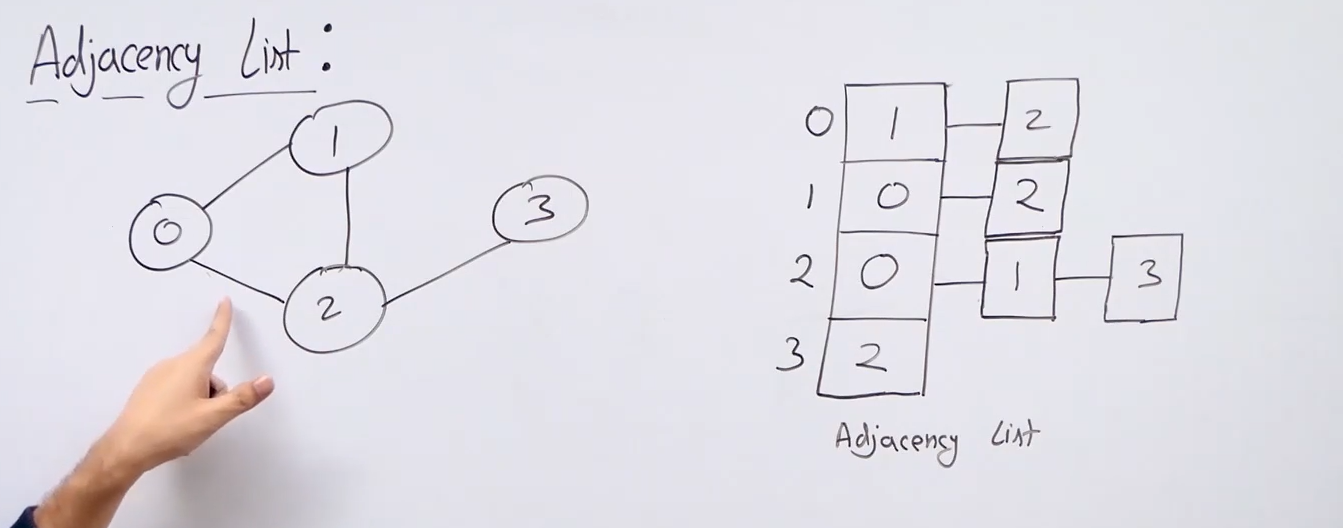 Adjacency List:
1
0
3
2
0 1 2
1 0 2
2 0 1 3
3 2
Adjacency List